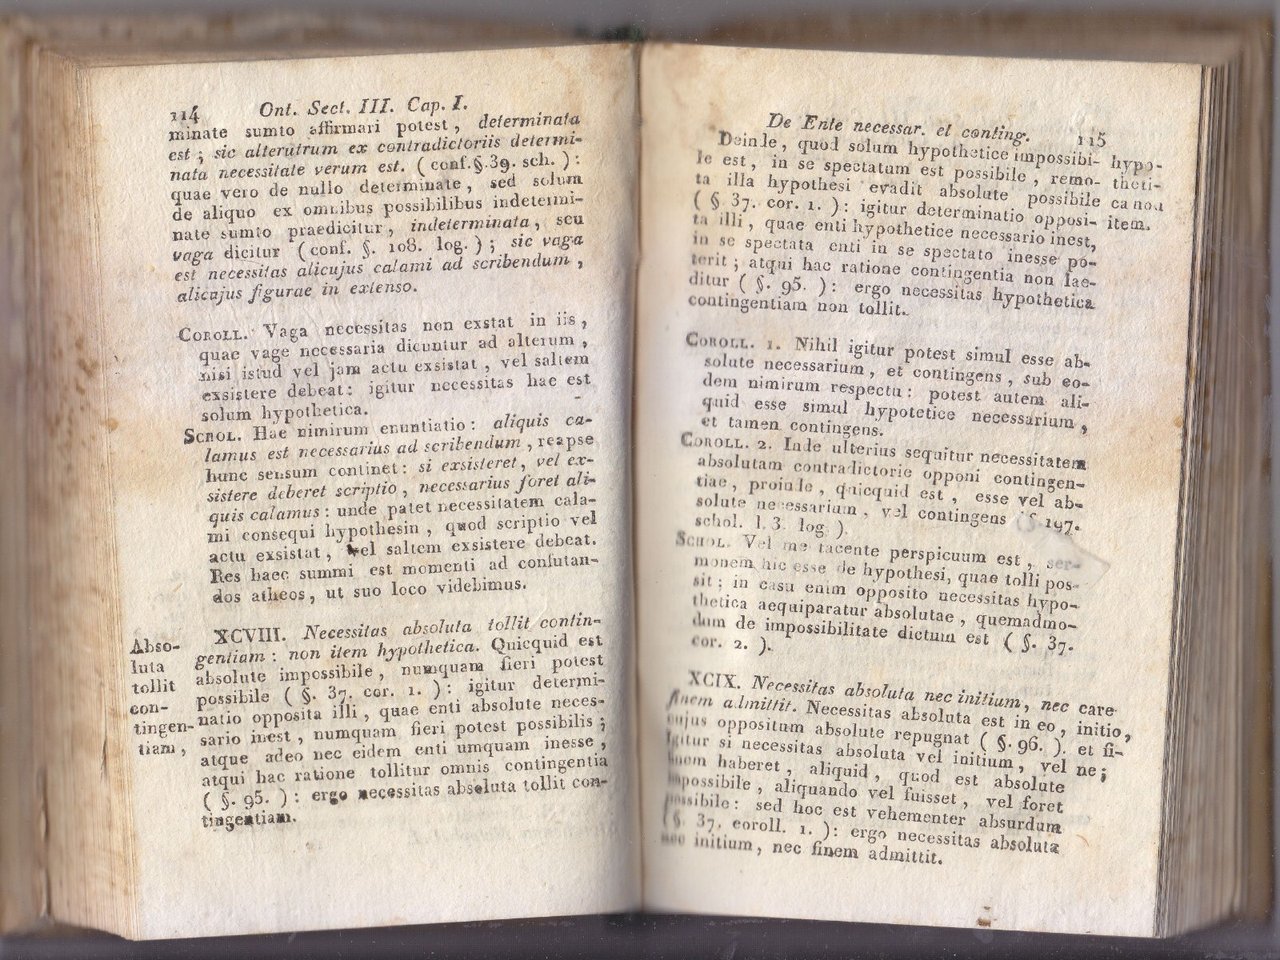 114 Ont. Sect. III. Cap. I.
minate sumto affirmari potest, determinata
est; sic alterutrum ex contradictoriis determi-
nata necessitate verum est. (conf. §. 39. sch.):
quae vero de nullo determinate, sed solum
de aliquo ex omnibus possibilibus indetermi-
nate sumto praedicitur, indeterminata, seu
vaga dicitur (conf. §. 108. log.); sic vaga
est necessitas alicujus calami ad scribendum,
alicujus figurae in extenso.
COROLL. Vaga necessitas non exstat in iis,
quae vage necessaria dicuntur ad alterum,
nisi istud vel jam actu exsistat, vel saltem
exsistere debeat: igitur necessitas haec est
solum hypothetica.
SCHOL. Haec nimirum enuntiatio: aliquis ca-
lamus est necessarius ad scribendum, reapse
hunc sensum continet: si exsisteret, vel ex-
sistere deberet scriptio, necessarius foret ali-
quis calamus: unde patet necessitatem cala-
mi consequi hypothesin, quod scriptio vel
actu exsistat, vel saltem exsistere debeat.
Res haec summi est momenti ad confutan-
dos atheos, ut suo loco videbimus.
Abso-
luta
tollit
con-
tingen-
tiam,
XCVIII. Necessitas absoluta tollit contin-
gentiam: non item hypothetica. Quicquid est
absolute impossibile, numquam fieri potest
possibile (§. 37. cor. 1.): igitur determi-
natio opposita illi, quae enti absolute neces-
sario inest, numquam fieri potest possibilis;
atque adeo nec eidem enti umquam inesse,
atqui hac ratione tollitur omnis contingentia
(§. 95.): ergo necessitas absoluta tollit con-
tingentiam.
De Ente necessar. et conting. 115
Deinde, quod solum hypothetice impossibi-
le est, in se spectatum est possibile, remo-
ta illa hypothesi evadit absolute possibile
(§ 37. cor. 1.): igitur determinatio opposi-
ta illi, quae enti hypothetice necessario inest,
in se spectata enti in se spectato inesse po-
terit; atqui hac ratione contingentia non lae-
ditur (§. 95.): ergo necessitas hypothetica
contingentiam non tollit.
hypo-
theti-
ca non
item.
COROLL. 1. Nihil igitur potest simul esse ab-
solute necessarium, et contingens, sub eo-
dem nimirum respectu: potest autem ali-
quid esse simul hypotetice necessarium,
et tamen contingens.
COROLL. 2. Inde ulterius sequitur necessitatem
absolutam contradictorie opponi contingen-
tiae, proinde, quicquid est, esse vel ab-
solute necessarium, vel contingens §. 197.
schol. l. 3. log.).
SCHOL. Vel me tacente perspicuum est, ser-
monem hic esse de hypothesi, quae tolli pos-
sit: in casu enim opposito necessitas hypo-
thetica aequiparatur absolutae, quemadmo-
dum de impossibilitate dictum est (§. 37.
cor. 2.).
XCIX. Necessitas absoluta nec initium, nec
finem admittit. Necessitas absoluta est in eo,
cujus oppositum absolute repugnat (§. 96.).
Igitur si necessitas absoluta vel initium, vel
finem haberet, aliquid, quod est absolute
impossibile, aliquando vel fuisset, vel foret
possibile: sed hoc est vehementer absurdum
(§. 37. coroll. 1.): ergo necessitas absoluta
nec initium, nec finem admittit.
care
initio,
et fi-
ne;